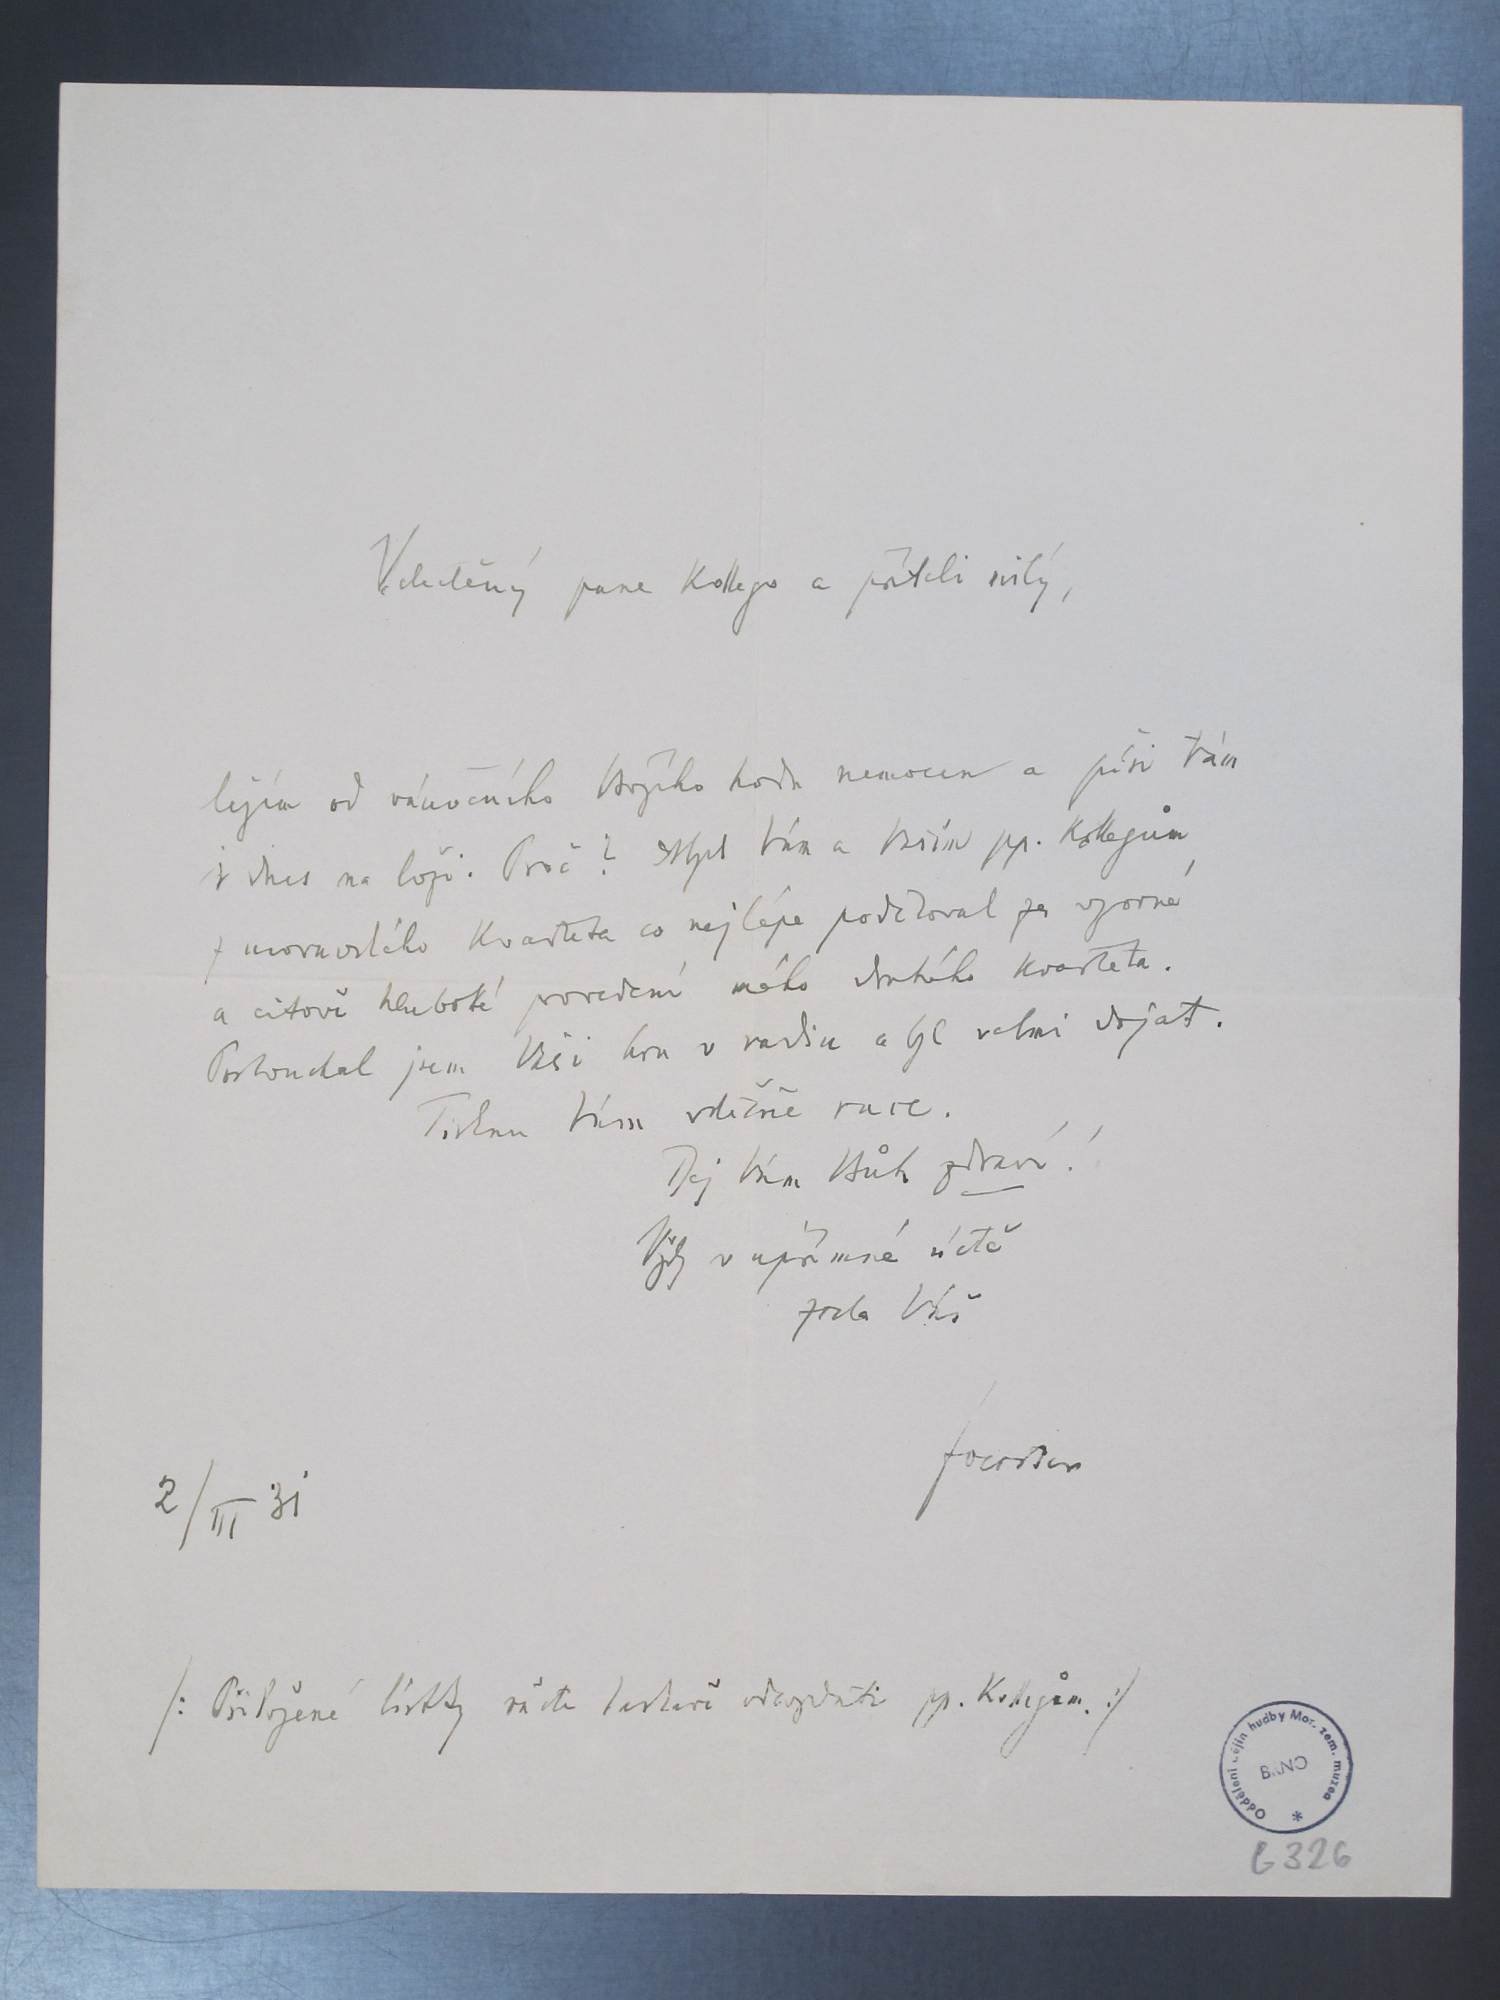 Vzletěný pane Kollego a příteli milý,
ležím od vánočního Božího hodu nemocen a píši Vám
i dnes na loži. Proč? Abych Vám a Vašim pp. Kollegům
z moravského Kvarteta co nejlépe poděkoval za vzorné
a citově hluboké provedení mého druhého kvarteta.
Poslouchal jsem Vaši hru v radiu a byl velmi dojat.
Tisknu Vám vděčně ruce.
Dej Vám Bůh zdraví!
Vždy v upřímné úctě
zcela Váš
Foerster
2/III 31
/: Přiložené lístky račte laskavě odevzdati pp. Kollegům. :/
Oddělení dějin hudby Mor. zem. muzea
BRNO
*
G 326